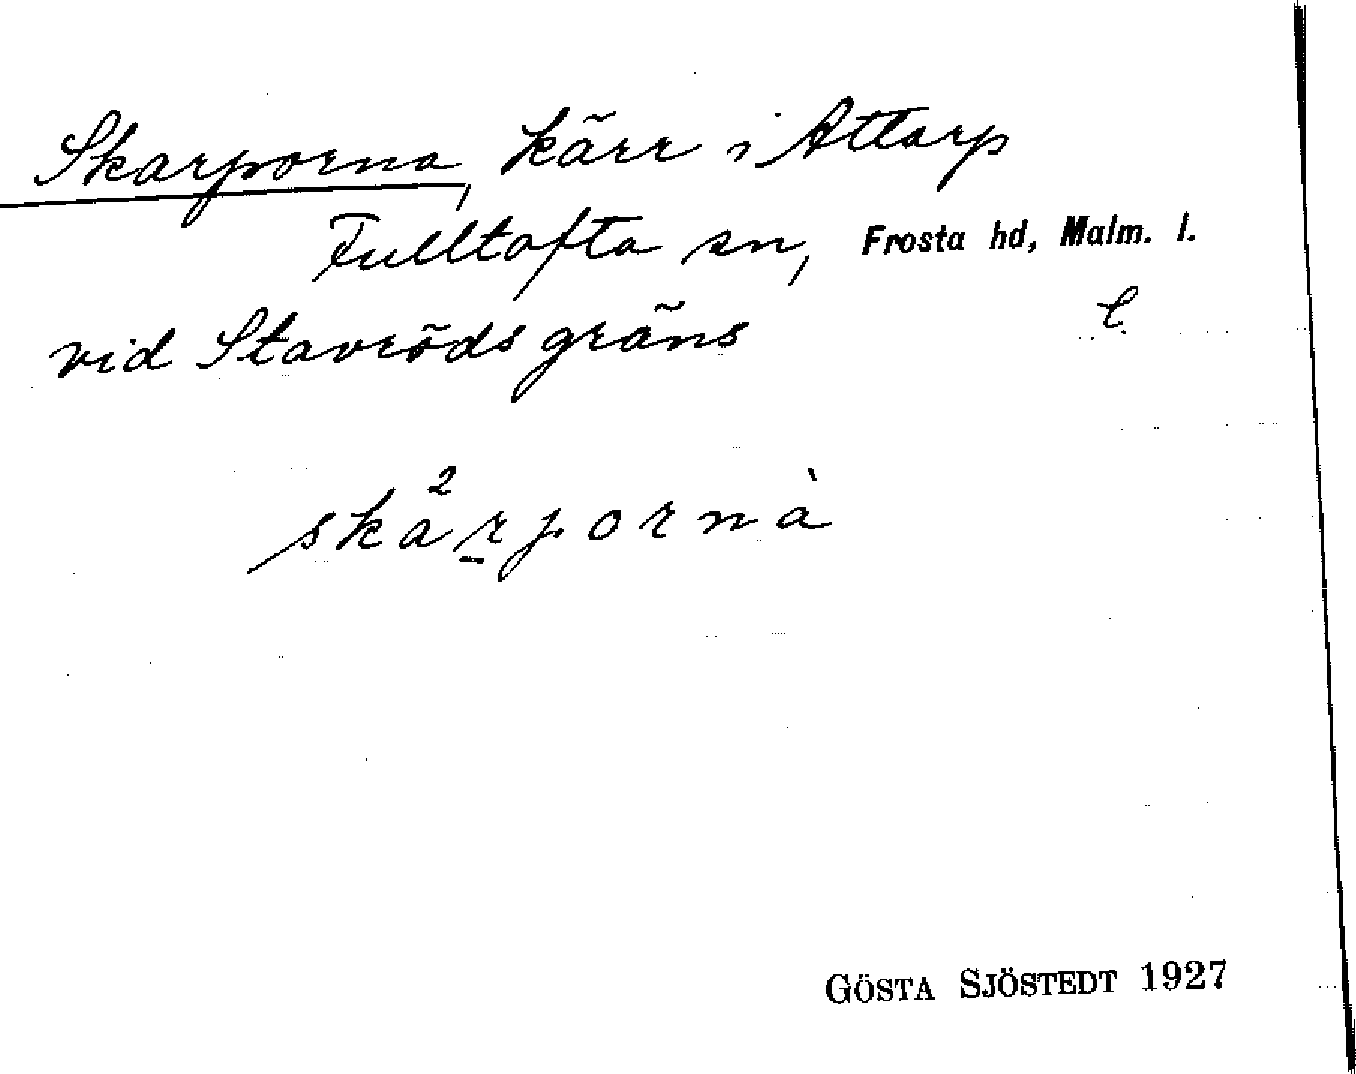 Skarporna, kärr i Attarp
Fulltofta sn, Frosta hd, Malm. l.
vid Stavröds gräns l.
ska²rpornà
GÖSTA SJÖSTEDT 1927